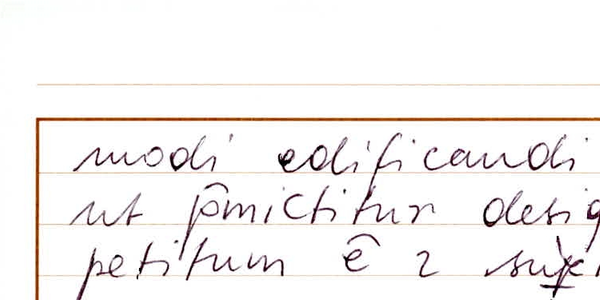 modi edificandi
ut p̄mictitur desig
petitum ē 2